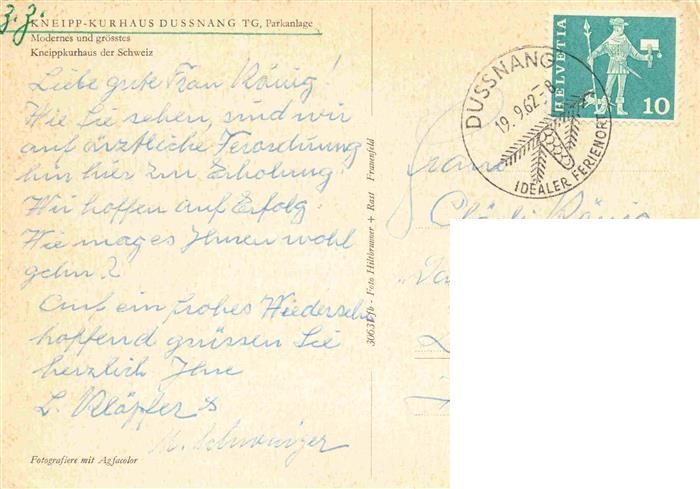 z.z.
KNEIPP-KURHAUS DUSSNANG TG, Parkanlage
Modernes und grösstes
Kneippkurhaus der Schweiz
Liebe gute Frau König!
Wie Sie sehen, sind wir
auf ärztliche Verordnung
hin hier zur Erholung!
Wir hoffen auf Erfolg.
Wie mag es Ihnen wohl
gehn?
Auf ein frohes Wiedersehn
hoffend grüssen Sie
herzlich Ihre
L. Klöpfer &
M. Schwinger
Fotografiere mit Agfacolor
30631 fb - Foto Hiltbrunner + Rast Frauenfeld
DUSSNANG
19.9.62-8
IDEALER FERIENORT
HELVETIA
10
Frau
König